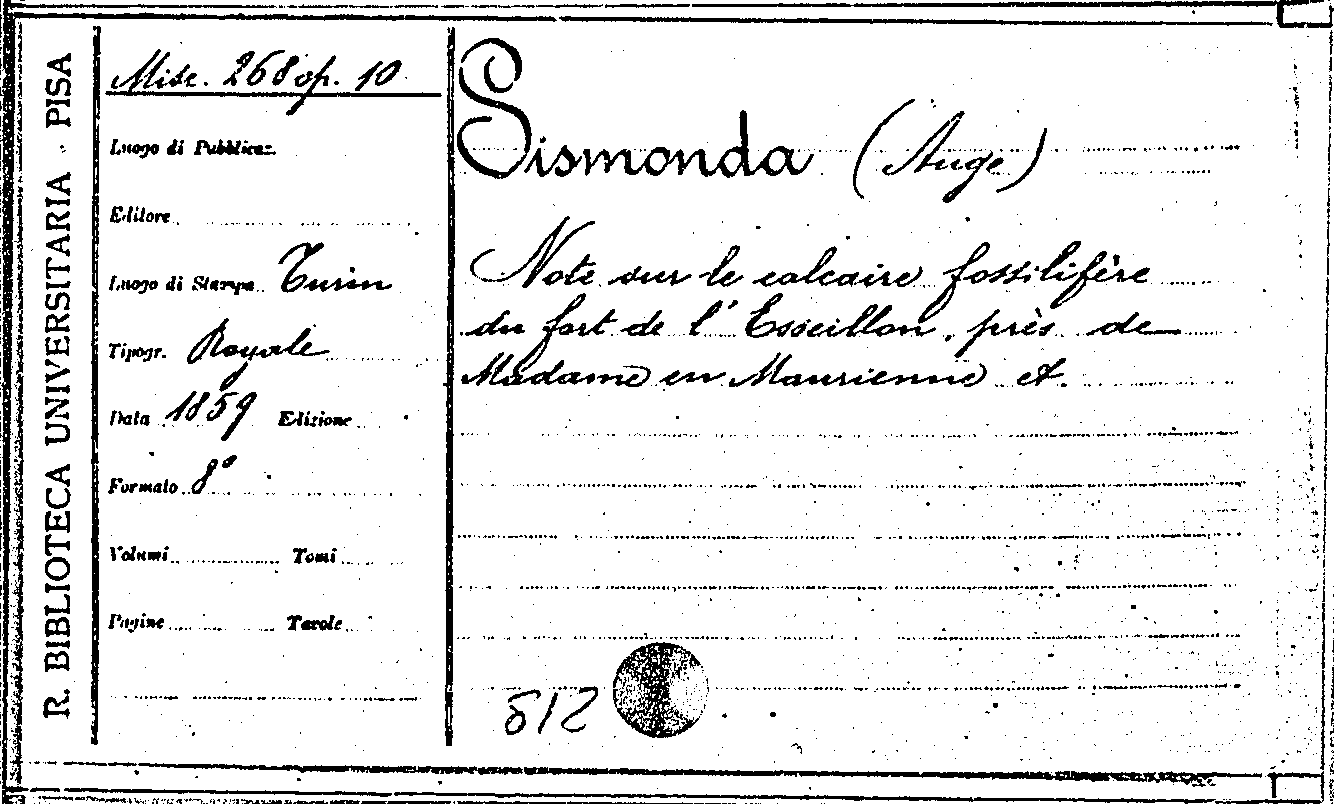 R. BIBLIOTECA UNIVERSITARIA . PISA
Misc. 268 op. 10
Luogo di Pubblicaz.
Editore
Luogo di Stampa Turin
Tipogr. Royale
Data 1859 Edizione
Formato 8°
Volumi Tomi
Pagine Tavole
Sismonda (Ange)
Note sur le calcaire fossilifère
du fort de l'Esseillon, près de
Madame en Maurienne et.
512